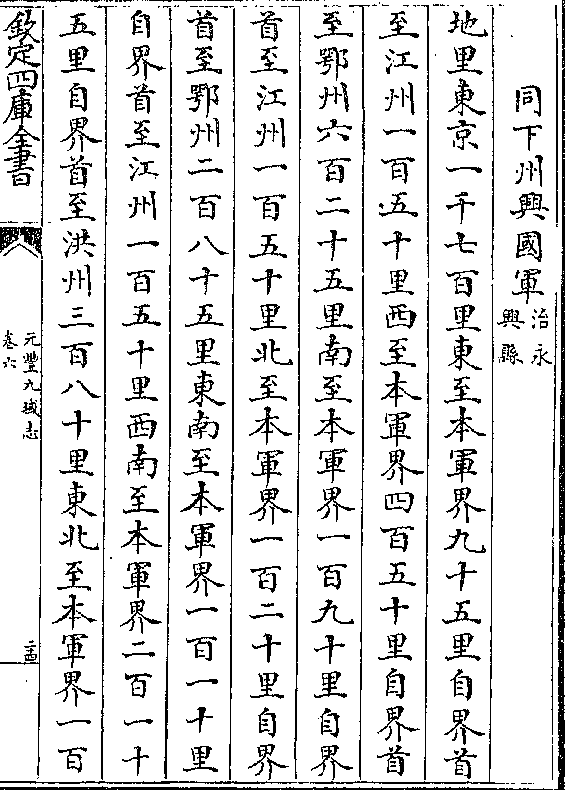 同下州興國軍治永興縣
地里東京一千七百里東至本軍界九十五里自界首
至江州一百五十里西至本軍界四百五十里自界首
至鄂州六百二十五里南至本軍界一百九十里自界
首至江州一百五十里北至本軍界一百二十里自界
首至鄂州二百八十五里東南至本軍界一百一十里
自界首至江州一百五十里西南至本軍界二百一十
五里自界首至洪州三百八十里東北至本軍界一百
欽定四庫全書
元豐九域志
卷六
二十四